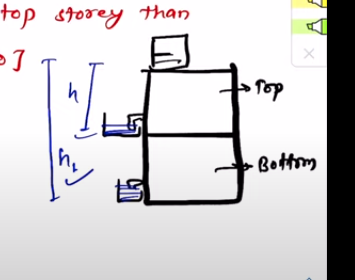 top storey than
]
h
Top
h₁
Bottom